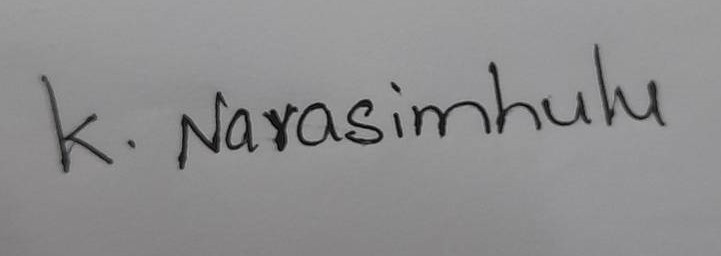 K. Narasimhulu